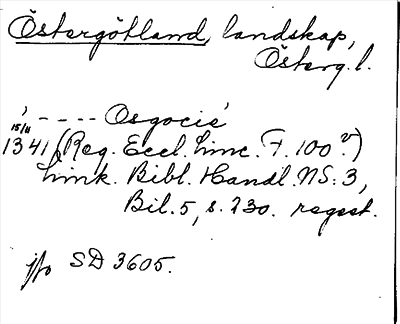 Östergötland, landskap,
Österg. l.
' - - - - Osgocie'
15/11
1341 (Reg. Eccl. Linc. F. 100 v.)
Link. Bibl. Handl. NS: 3,
Bil. 5, s. 230. regest.
jfr SD 3605.